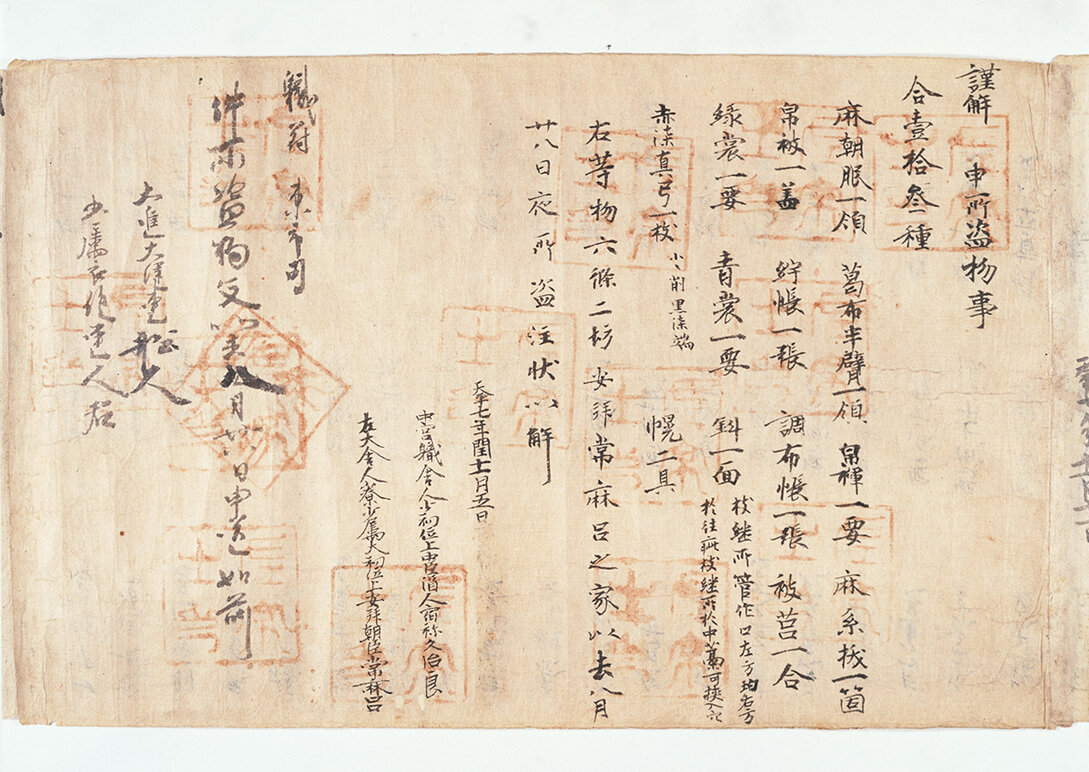 謹解　申所盗物事
合壹拾叁種
麻朝服一領　葛布半臂一領　帛褌一要　麻糸抜一箇
帛被一盖　紵帳一張　調布帳一張　被筥一合
緑裳一要　青裳一要　斜一面　枚継所管作口左方均右方
於往疵枚継所於中藁可挟入之
赤漆真弓一枚　小々削黒漆端　幌二具
右等物六條二坊安拝常麻呂之家以去八月
廿八日夜所盗注状以解
天平七年閏十一月五日
中宮職舎人少初位上中臣酒人宿祢久治良
左大舎人寮少属大初位上安拝朝臣常麻呂
職符　東市司
件所盗物文以去八月廿八日申送如前
大進大津連船人
少属衣縫連人君